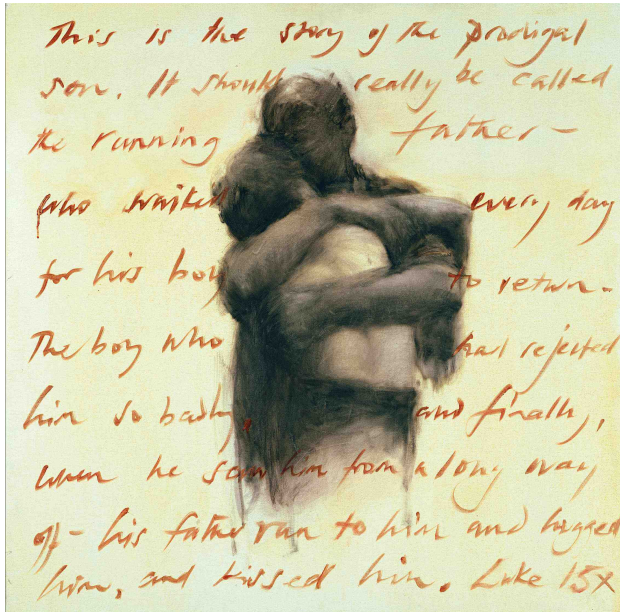 This is the story of the prodigal
son. It should really be called
the running father-
who waited every day
for his boy to return.
The boy who had rejected
him so badly, and finally,
when he saw him from a long way
off- his father ran to him and hugged
him, and kissed him. Luke 15